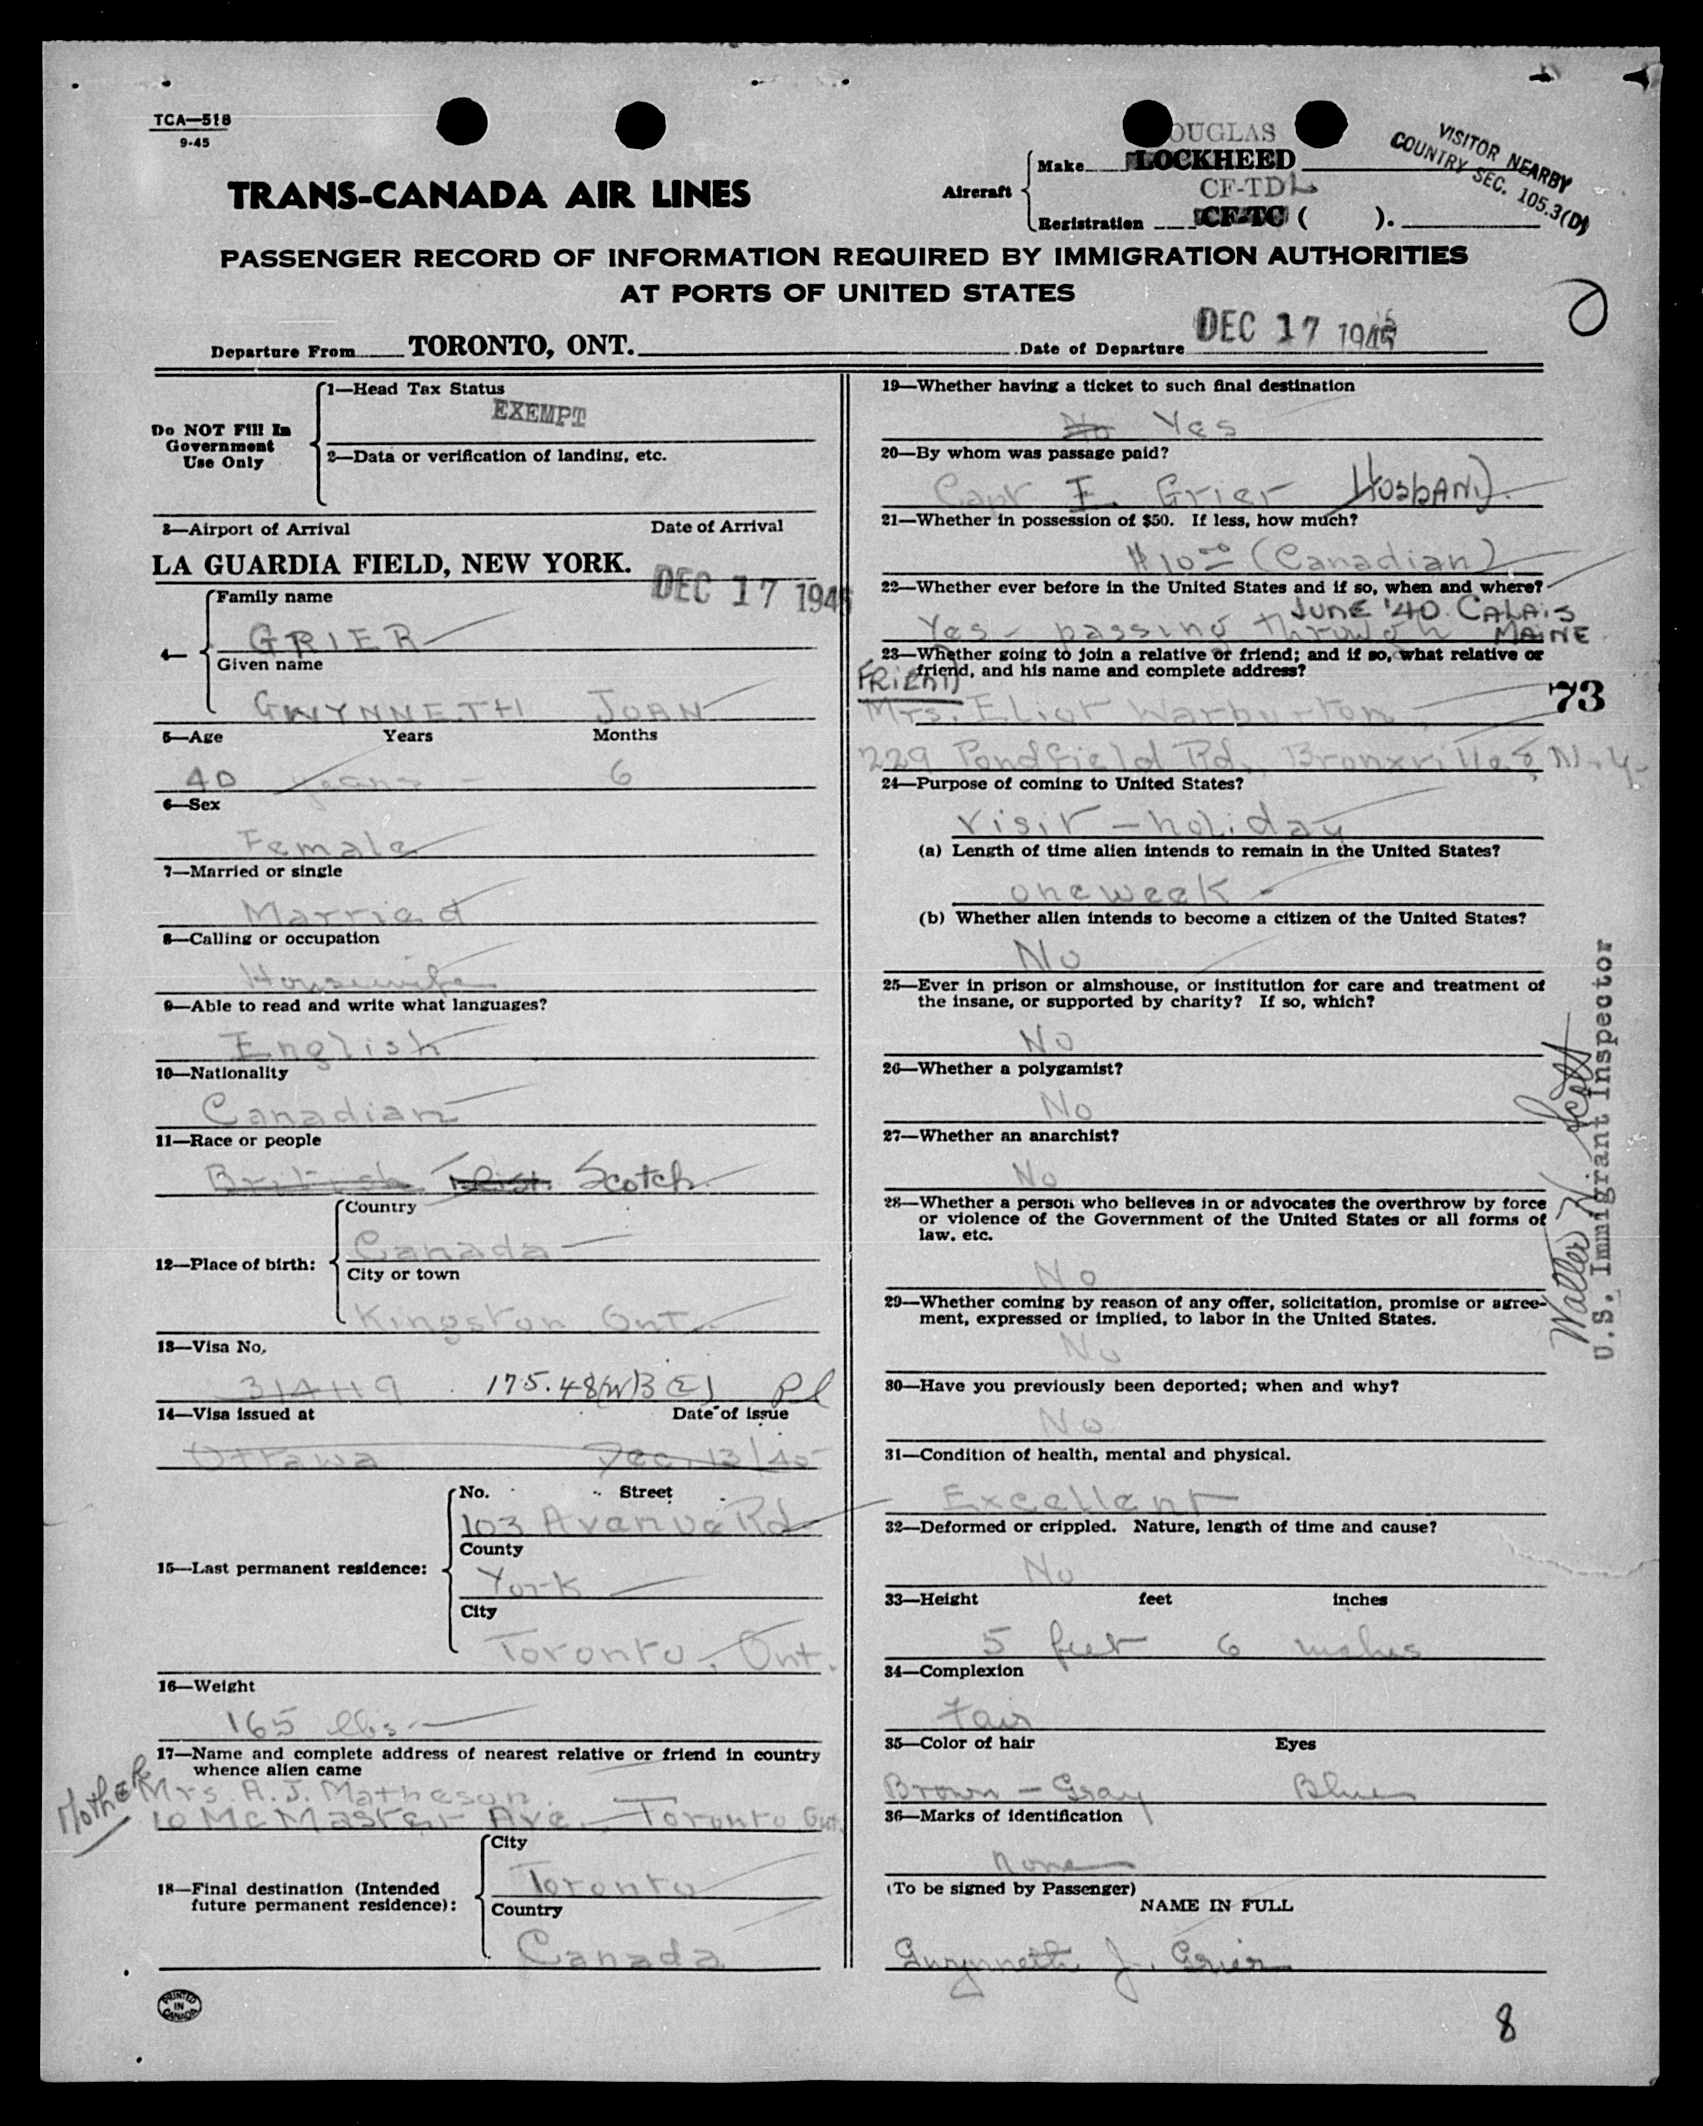 TCA—518
9-45
TRANS-CANADA AIR LINES
Aircraft
OUGLAS
Make LOCKHEED
CF-TDL
Registration CF-TC ( ).
VISITOR NEARBY
COUNTRY SEC. 105.3(D)
PASSENGER RECORD OF INFORMATION REQUIRED BY IMMIGRATION AUTHORITIES
AT PORTS OF UNITED STATES
Departure From TORONTO, ONT.
Date of Departure DEC 17 1945
Do NOT Fill In
Government
Use Only
1—Head Tax Status
EXEMPT
2—Data or verification of landing, etc.
3—Airport of Arrival Date of Arrival
LA GUARDIA FIELD, NEW YORK. DEC 17 1945
4—
Family name
GRIER
Given name
GWYNNETH JOAN
5—Age Years Months
40 years - 6
6—Sex
Female
7—Married or single
Married
8—Calling or occupation
Housewife
9—Able to read and write what languages?
English
10—Nationality
Canadian
11—Race or people
British Irish Scotch
12—Place of birth:
Country
Canada
City or town
Kingston Ont.
13—Visa No.
314119 175.48
14—Visa issued at Date of issue
Ottawa Dec. 13/45
15—Last permanent residence:
No. Street
103 Avenue Rd
County
York
City
Toronto, Ont.
16—Weight
165 lbs
17—Name and complete address of nearest relative or friend in country
whence alien came
Mother Mrs. A. J. Matheson.
10 McMaster Ave. Toronto Ont.
18—Final destination (Intended
future permanent residence):
City
Toronto
Country
Canada
PRINTED
IN
CANADA
19—Whether having a ticket to such final destination
No Yes
20—By whom was passage paid?
Capt E. Grier HUSBAND.
21—Whether in possession of $50. If less, how much?
$10 00 (Canadian)
22—Whether ever before in the United States and if so, when and where?
JUNE '40 CALAIS
Yes - passing through MAINE
23—Whether going to join a relative or friend; and if so, what relative or
friend, and his name and complete address?
FRIEND
73
Mrs. Eliot Warburton
229 Pondfield Rd., Bronxville 8, N.Y.
24—Purpose of coming to United States?
visit - holiday
(a) Length of time alien intends to remain in the United States?
one week -
(b) Whether alien intends to become a citizen of the United States?
No
25—Ever in prison or almshouse, or institution for care and treatment of
the insane, or supported by charity? If so, which?
No
26—Whether a polygamist?
No
27—Whether an anarchist?
No
28—Whether a person who believes in or advocates the overthrow by force
or violence of the Government of the United States or all forms of
law, etc.
No
29—Whether coming by reason of any offer, solicitation, promise or agree-
ment, expressed or implied, to labor in the United States.
No
30—Have you previously been deported; when and why?
No
31—Condition of health, mental and physical.
Excellent
32—Deformed or crippled. Nature, length of time and cause?
No
33—Height feet inches
5 feet 6 inches
34—Complexion
Fair
35—Color of hair Eyes
Brown - Gray Blue
36—Marks of identification
None
(To be signed by Passenger)
NAME IN FULL
Gwynneth J. Grier
Walter W Scott
U.S. Immigrant Inspector
8